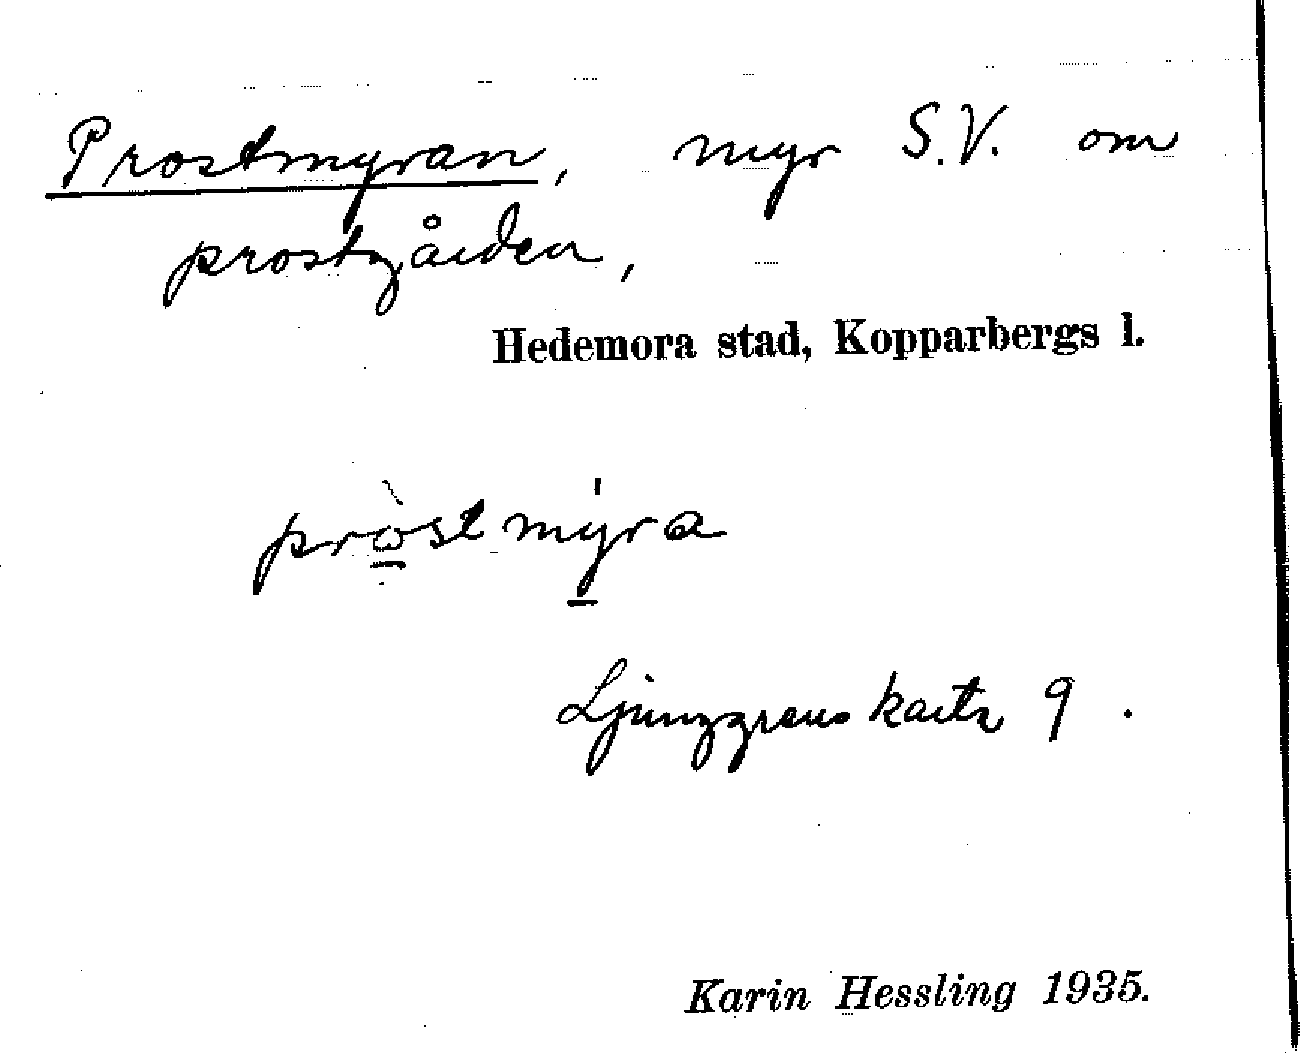 Prostmyran, myr S.V. om
prostgården,
Hedemora stad, Kopparbergs l.
pròstmýra
Ljunggrens karta 9.
Karin Hessling 1935.